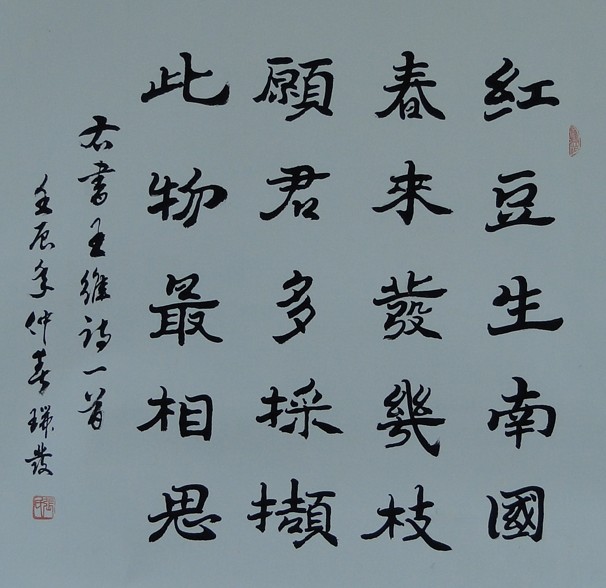 紅豆生南國
春來發幾枝
願君多採擷
此物最相思
右書王維詩一首
壬辰年仲春瑞發